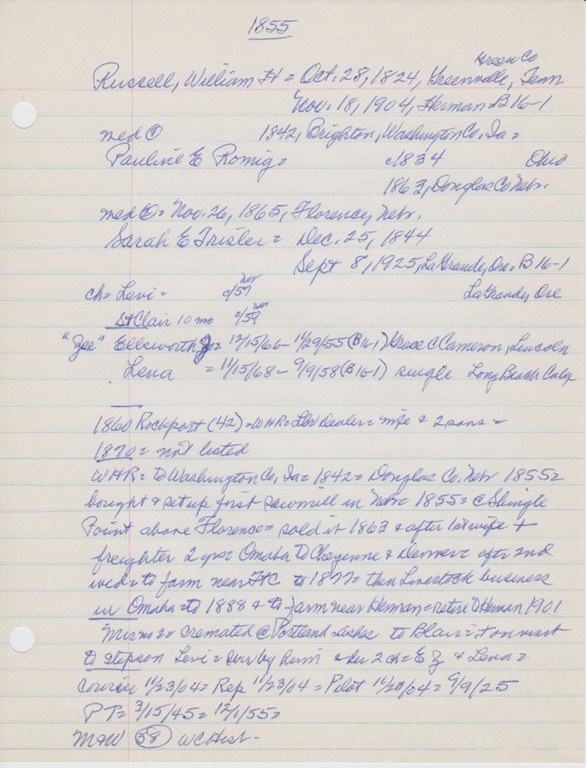 1855
Green Co
Russell, William H = Oct. 28, 1824, Greenville, Tenn
Nov. 18, 1904, Herman B 16-1
med ① 1842, Brighton, Washington Co, Ia =
Pauline E Romig = c/1834 Ohio
1863, Douglas Co Nebr.
med ② = Nov. 26, 1865, Florence, Nebr.
Sarah E Trisler = Dec. 25, 1844
Sept 8, 1925, La Grande, Ore. B 16-1
ch = Levi = c/57 Nebr La Grande, Ore
St Clair 10 mo c/59 Nebr
"Zee" Ellsworth Z = 12/15/66 - 11/29/55 (B 16-1) Grace C Cameron, Lincoln
Lena = 11/15/68 - 9/9/58 (B 16-1) single Long Beach Calif
1860 Rockport (42) = WHR = Dealer = wife & 2 sons =
1870 = not listed
WHR = to Washington Co, Ia = 1842 = Douglas Co. Nebr 1855 =
bought & set up first sawmill in Nebr = 1855 = @ Shingle
Point above Florence = sold it 1863 & after 1st wife +
freighter 2 yrs = Omaha to Cheyenne & Denver = after 2nd
wed = to farm near FtC to 1877 = then Livestock business
in Omaha = to 1888 & to farm near Herman = retire to Herman 1901
Mrs cremated @ Portland = ashes to Blair =
to stepson Levi = by him & her 2 ch = E Z & Lena =
Courier 11/23/04 = Rep 11/23/04 = Pilot 11/20/04 = 9/9/25
PT = 3/15/45 = 12/1/55 =
M&W (58) WC Hist -